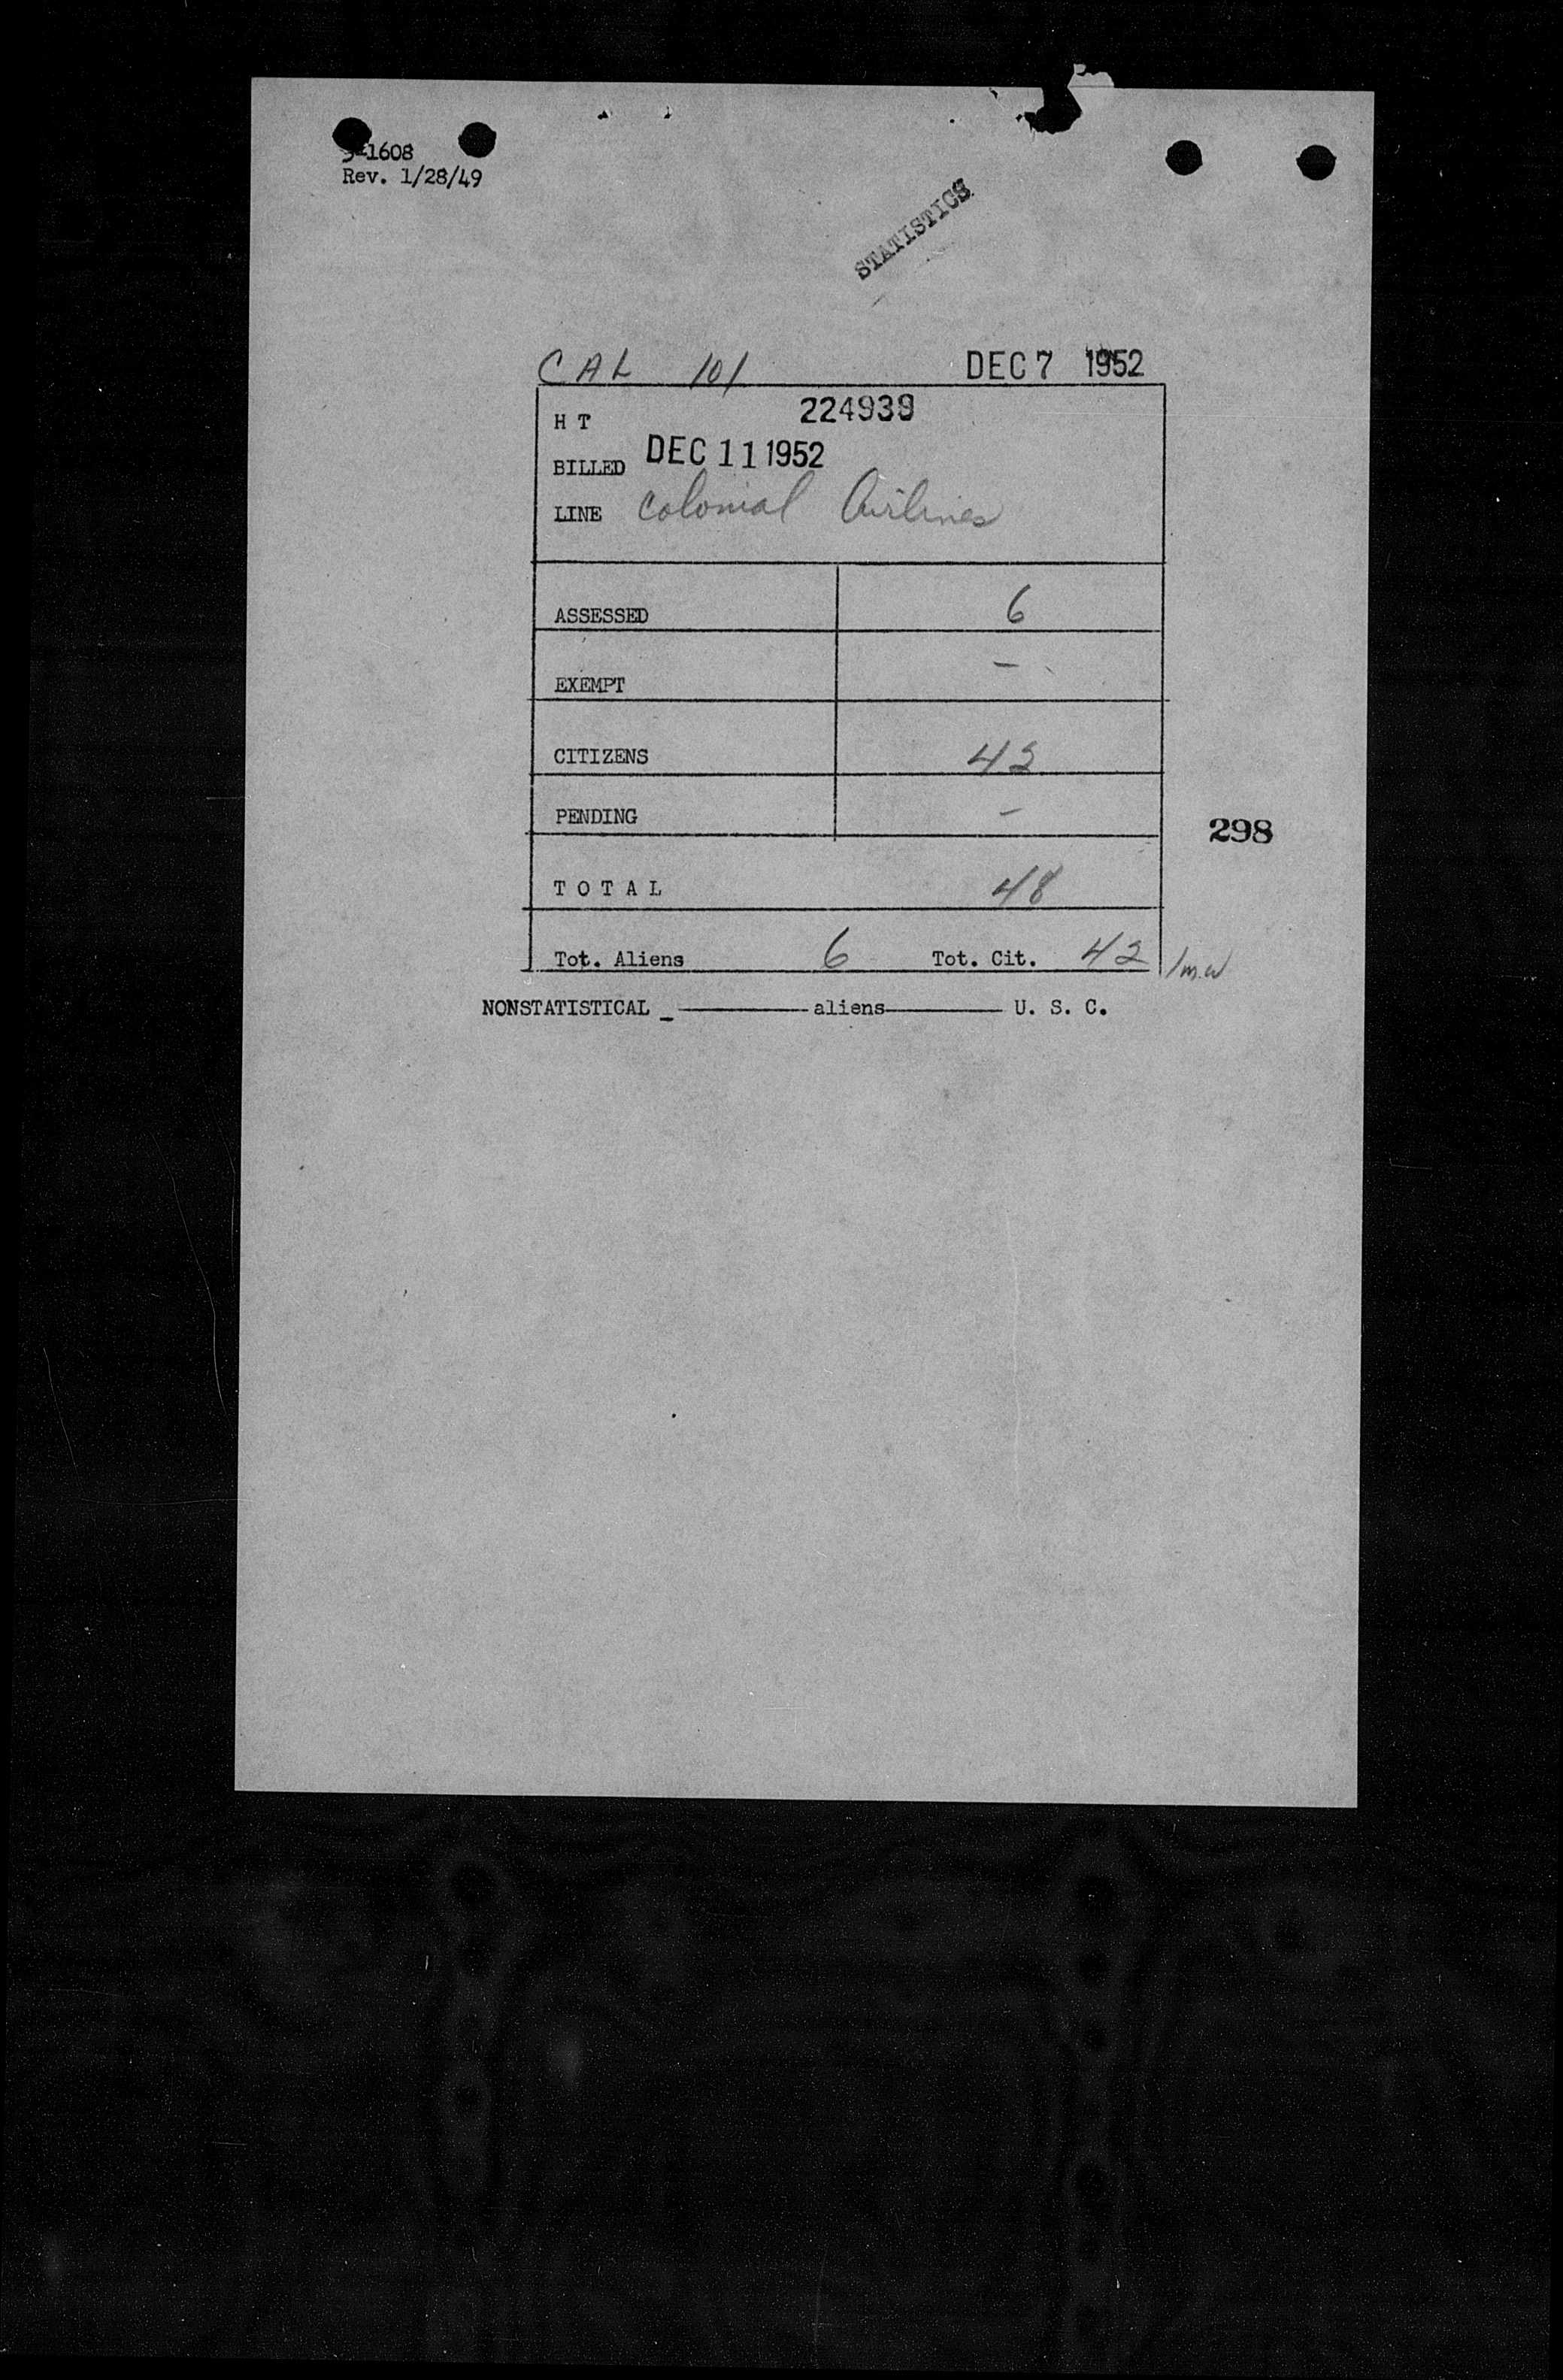 5-1608
Rev. 1/28/49
STATISTICS
CAL 101 DEC 7 1952
H T 224939
BILLED DEC 11 1952
LINE Colonial Airlines
ASSESSED 6
EXEMPT –
CITIZENS 42
PENDING –
298
T O T A L 48
Tot. Aliens 6 Tot. Cit. 42 /m.w
NONSTATISTICAL _ ———— aliens ———— U. S. C.